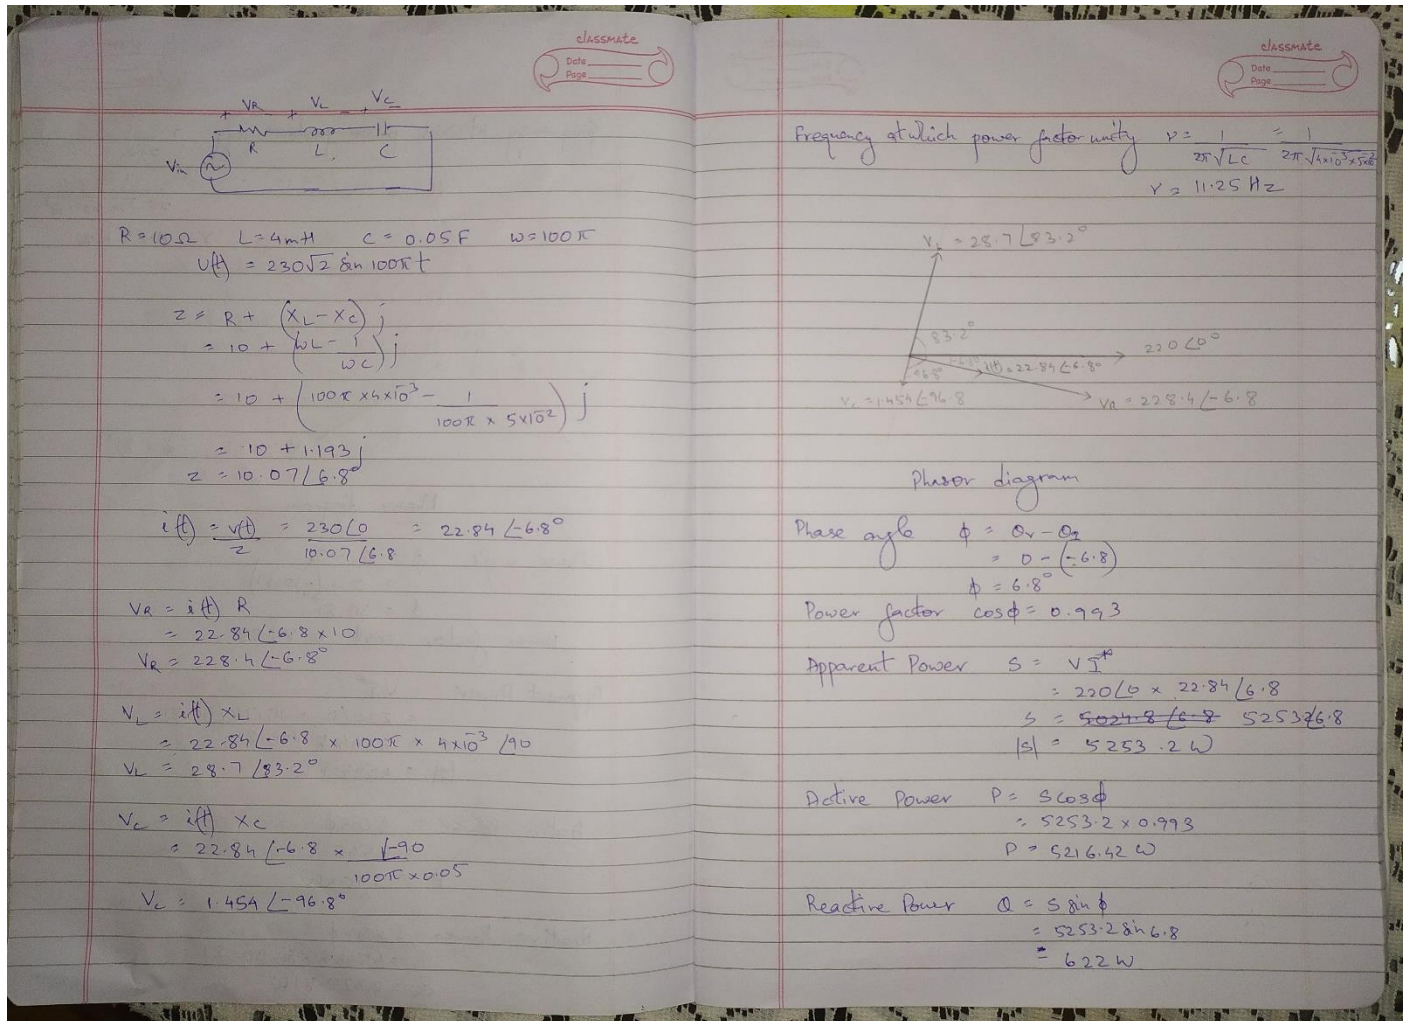 classmate
Date
Page
VR VL VC
+ - + - + -
R L C
Vin
R=10Ω L=4mH C=0.05F W=100π
V(t) = 230√2 Sin 100πt
Z = R + (XL-XC) j
= 10 + (WL - 1/WC) j
= 10 + (100π x 4x10⁻³ - 1/(100π x 5x10⁻²)) j
= 10 + 1.193j
Z = 10.07∠6.8°
i(t) = V(t)/Z = 230∠0/10.07∠6.8 = 22.84∠-6.8°
VR = i(t) R
= 22.84∠-6.8 x 10
VR = 228.4∠-6.8°
VL = i(t) XL
= 22.84∠-6.8 x 100π x 4x10⁻³ ∠90
VL = 28.7∠83.2°
VC = i(t) XC
= 22.84∠-6.8 x ∠-90/(100π x 0.05)
VC = 1.454∠-96.8°
classmate
Date
Page
Frequency at which power factor unity ν = 1/(2π√LC) = 1/(2π√(4x10⁻³x5x10⁻²))
ν = 11.25 Hz
VL = 28.7∠83.2°
83.2°
220∠0°
-6.8°
i(t) = 22.84∠-6.8°
96.8°
VC = 1.454∠-96.8
VR = 228.4∠-6.8
Phasor diagram
Phase angle ϕ = θv - θI
= 0 - (-6.8)
ϕ = 6.8°
Power factor cosϕ = 0.993
Apparent Power S = VI*
= 220∠0 x 22.84∠6.8
S = 5024.8∠6.8 5253.2∠6.8
|S| = 5253.2 W
Active Power P = Scosϕ
= 5253.2 x 0.993
P = 5216.42 W
Reactive Power Q = S sinϕ
= 5253.2 sin 6.8
= 622 W